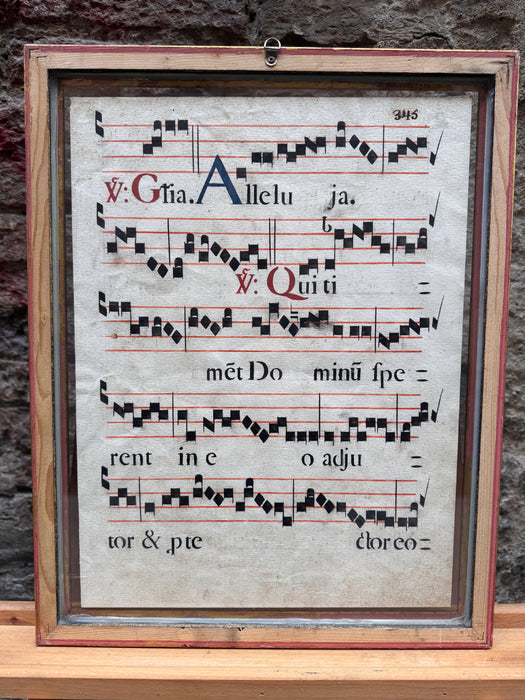 345
℣: Gľia. Allelu ja.
℣: Qui ti =
mẽt Do minũ ſpe =
rent in e o adju =
tor & ꝓte ctor eo =